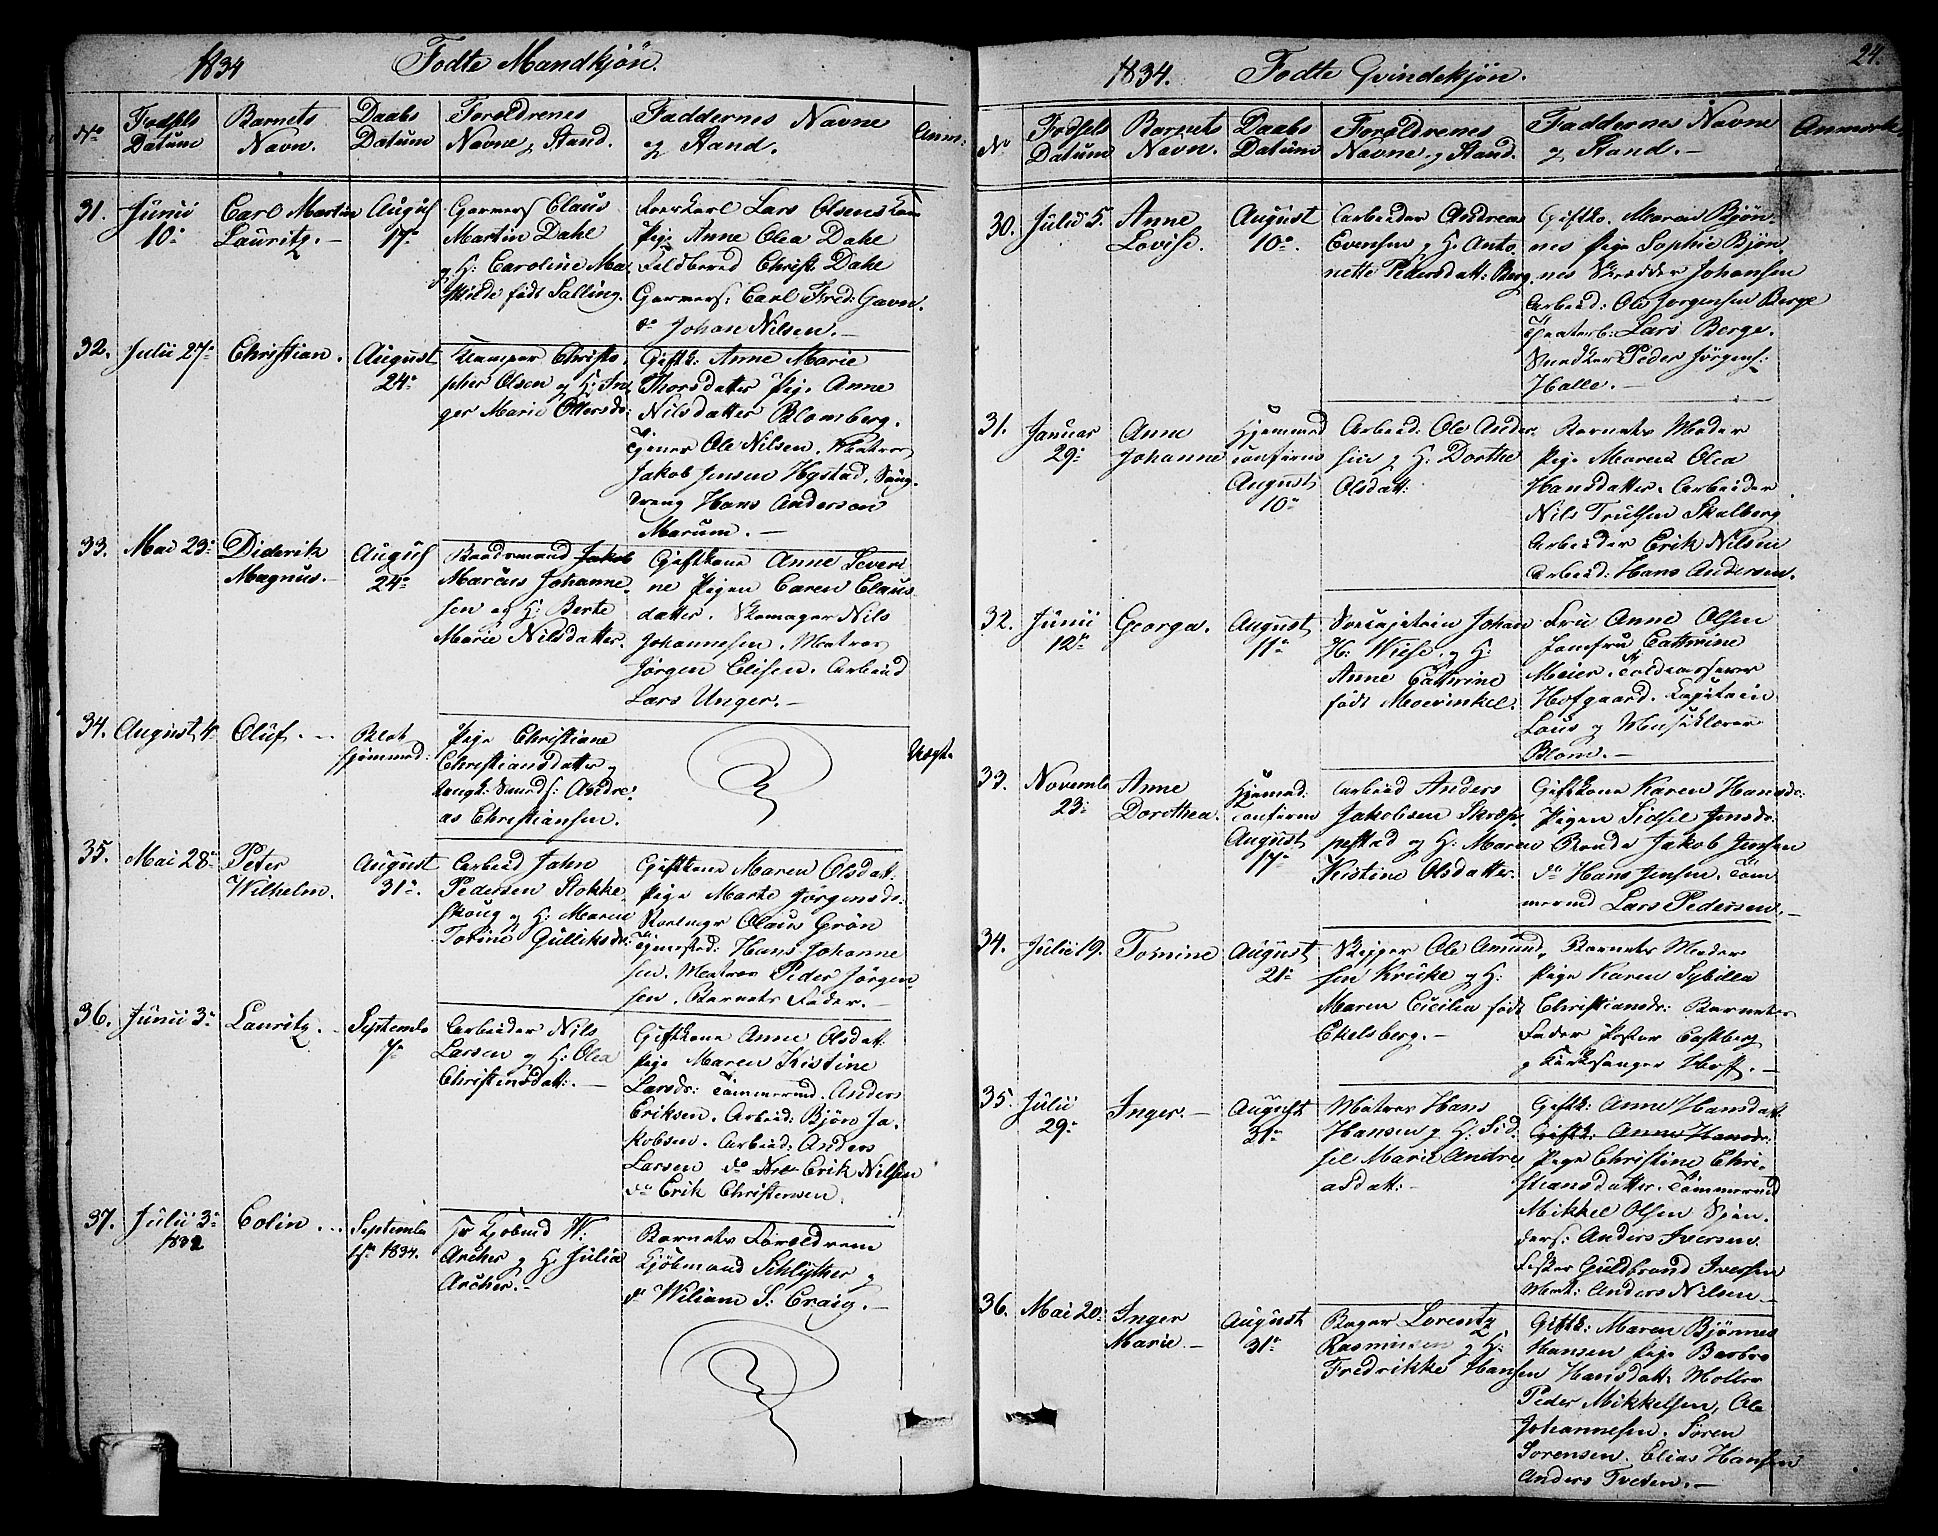 1834 Fødte Mandkjøn.
No Fødsels Datum Barnets Navn. Daabs Datum Foreldrenes Navne og Stand. Faddernes Navne og Stand. Anm:
31. Junii 10de Carl Martin Lauritz. August 17de
Garvers. Claus
Martin Dahl
og H: Caroline Ma-
thilde født Salling.
Lars Olsens Kone
Pige Anne Olea Dahl
Feldbered Christ. Dahl
Garvers: Carl Fred: Gavn.
do Johan Nilsen.
32. Julii 27de Christian. August 24de
Christo
pher Olsen og H: In
ger Marie Ottersdr:
Giftk: Anne Marie
Thorsdatter Pige Anne
Nilsdatter Blomberg.
Tjener Ole Nilsen. Matros
Jakob Jensen Hgstad.
dreng Hans Anderson
Marum.
33. Mai 23de Diderik Magnus. August 24de
Baadsmand Jakob
Marcus Johanne-
sen og H: Berte
Marie Nilsdatter.
Giftkone Anne Severi
ne Pigen Caren Claus
datter. Skomager Nils
Johannesen. Matros
Jørgen Elisen. Arbeid
Lars Unger.
34. August 4. Oluf. Blot hjemmed:
Pige Christiane
Christiansdatter og
Andre-
as Christiansen.
Uægte
35. Mai 28de Peter Wilhelm. August 31de.
Arbeid John
Pedersen Stokke-
skoug og H: Maren
Tobine Gulliksdr:
Giftkone Maren Olsdat:
Pige Marte Jørgensdr:
Olaus Grøn
Hans Johanne
sen. Matros Peder Jørgen
sen. Barnets Fader.
36. Junii 3de Lauritz. Septembr 7de
Arbeider Nils
Larsen og H: Olea
Christensdatt:
Giftkone Anne Olsdat:
Pige Maren Kistine
Larsdr: Tømmermd. Anders
Eriksen. Arbeid: Bjøn Ja-
kobsen. Arbeid: Anders
Larsen do Erik Nilsen
do Erik Christensen.
37. Julii 3de 1832 Colin. Septembr 1834.
Hr Kjøbmd W:
Archer og H: Julia
Archer.
Barnets Foreldrene
Kjøbmand Schlytter og
do Wiliam S: Craig.
1834. Fødte Qvindekjøn. 24.
No Fødsels Datum Barnets Navn. Daabs Datum Foreldrenes Navne og Stand. Faddernes Navne og Stand. Anmærk
30. Julii 5. Anne Lovise. August 10de.
Arbeider Andreas
Evensen og H: Anto
nette Pedersdatt: Berg.
Giftko. Maren Bjøn
nes Pige Sophie Bjøn
nes Skrædder Johansen
Arbeid: Ole Jørgensen Berge
Lars Berge.
Snedker Peder Jørgens:
Halle.
31. Januar 29de Anne Johanne Hjemmed confirm August 10de
Arbeid: Ole Ander
sen og H: Dorthe
Olsdatt:
Barnets Moder
Pige Maren Olea
Hansdatter. Arbeider
Nils Trulsen Skalberg
Arbeider Erik Nilsen
Arbeid: Hans Andersen.
32. Junii 12de Georga. August 11de
Johan
H: Wiese og H:
Anne Cathrine
født Mowinkel.
Fru Anne Olsen
Jomfru Cathrine
Meier. Toldcasserer
Hofgaard. Capitain
Lous og Musiklærer
Blom.
33. Novembr 23de Anne Dorothea. Hjemmed: confirm August 17de
Arbeid Anders
Jakobsen Skrøp-
pestad og H: Maren
Kistine Olsdatter.
Giftkone Karen Hansdr:
Pigen Sidsel Jensdr.
Bonde Jakob Jensen
do Hans Jensen. Tøm
mermd Lars Pedersen.
34. Julii 19. Tomine August 21de
Skipper Ole Amund
sen Kruke og H:
Maren Cicilia født
Ekelsberg.
Barnets Moder
Pige Karen Sybilla
Christiansdr: Barnets
Fader Pastor Castberg
og Kirkesanger Hoff.
35. Julii 29de Inger. August 31de
Matros Hans
Hansen og H: Sid
sel Marie Andre
asdatt:
Giftk: Anne Hansdatt
Giftk: Anne Hansdr:
Pige Christine Chri-
stiansdatter. Tømmermd
Mikkel Olsen
Anders Iversen
Fisker Guldbrand Iversen
Mat: Anders Nilsen
36. Mai 20de Inger Marie. August 31te
Bager Lorentz
Rasmussen og H:
Fredrikke Hansen
Giftk: Maren Bjønnes
Hansen Pige Barbro
Hansdatt: Møller
Peder Mikkelsen, Ole
Johannesen. Søren
Sørensen. Elias Hansen
Anders Tveten.